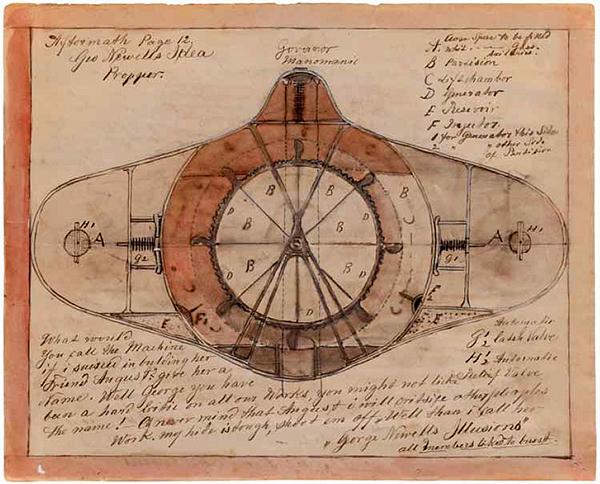 Aftermath Page 12.
Geo Newells Idea
Propper.
Governor
Manomanic
A.
B Parsision
C Liftchamber
D Generator
E Resevoir
F Injector
for Generator this Side
" " other Side
of Partision
H1
A
G2
B
B
B
B
B
B
B
D
D
D
D
D
D
D
G1
A
H1
E
E
F
What would
you call the Machine
if i suceed in bulding her
Friend August? give her a
Name. Well George you have
been a hard Critic on all our Works, you might not like
the name! O never mind that August i will critsise other peoples
Work. my hide is tough, shoot em off. Well than i call her
"Gorge Newells Illusions"
all members liked to burst.
Automatic
G 1 2 Catch Valve
H 1 2 Automatic
Relief Valve